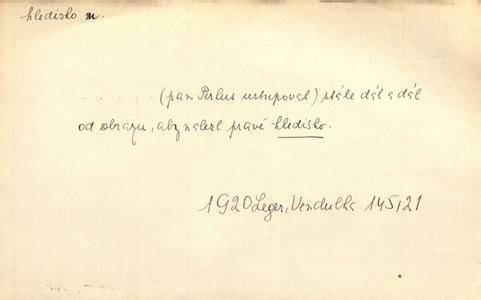 hledisko n.
. . . . . . (pan Perlus ustupoval) stále dál a dál
od obrazu, aby nalezl pravé hledisko.
1920 Leger, Vendulka 145/21